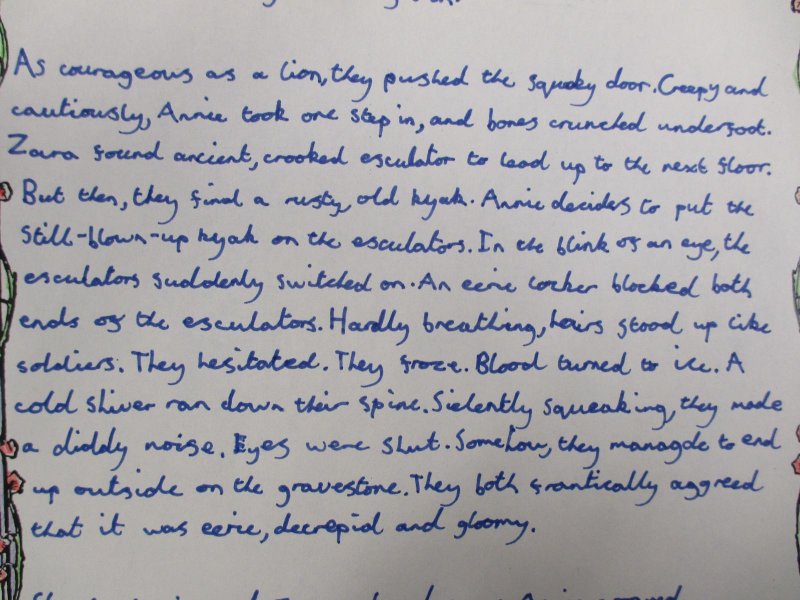 As courageous as a lion, they pushed the squeky door. Creepy and
cautiously, Annie took one step in, and bones crunched underfoot.
Zara found ancient, crooked esculator to lead up to the next floor.
But then, they find a rusty, old kyak. Annie decides to put the
still-blown-up kyak on the esculators. In the blink of an eye, the
esculators suddenly switched on. An eerie locker blocked both
ends of the esculators. Hardly breathing, hairs stood up like
soldiers. They hesitated. They froze. Blood turned to ice. A
cold shiver ran down their spine. Sielently squeaking, they made
a diddy noise. Eyes were shut. Somehow, they managde to end
up outside on the gravestone. They both frantically aggreed
that it was eerie, decrepid and gloomy.